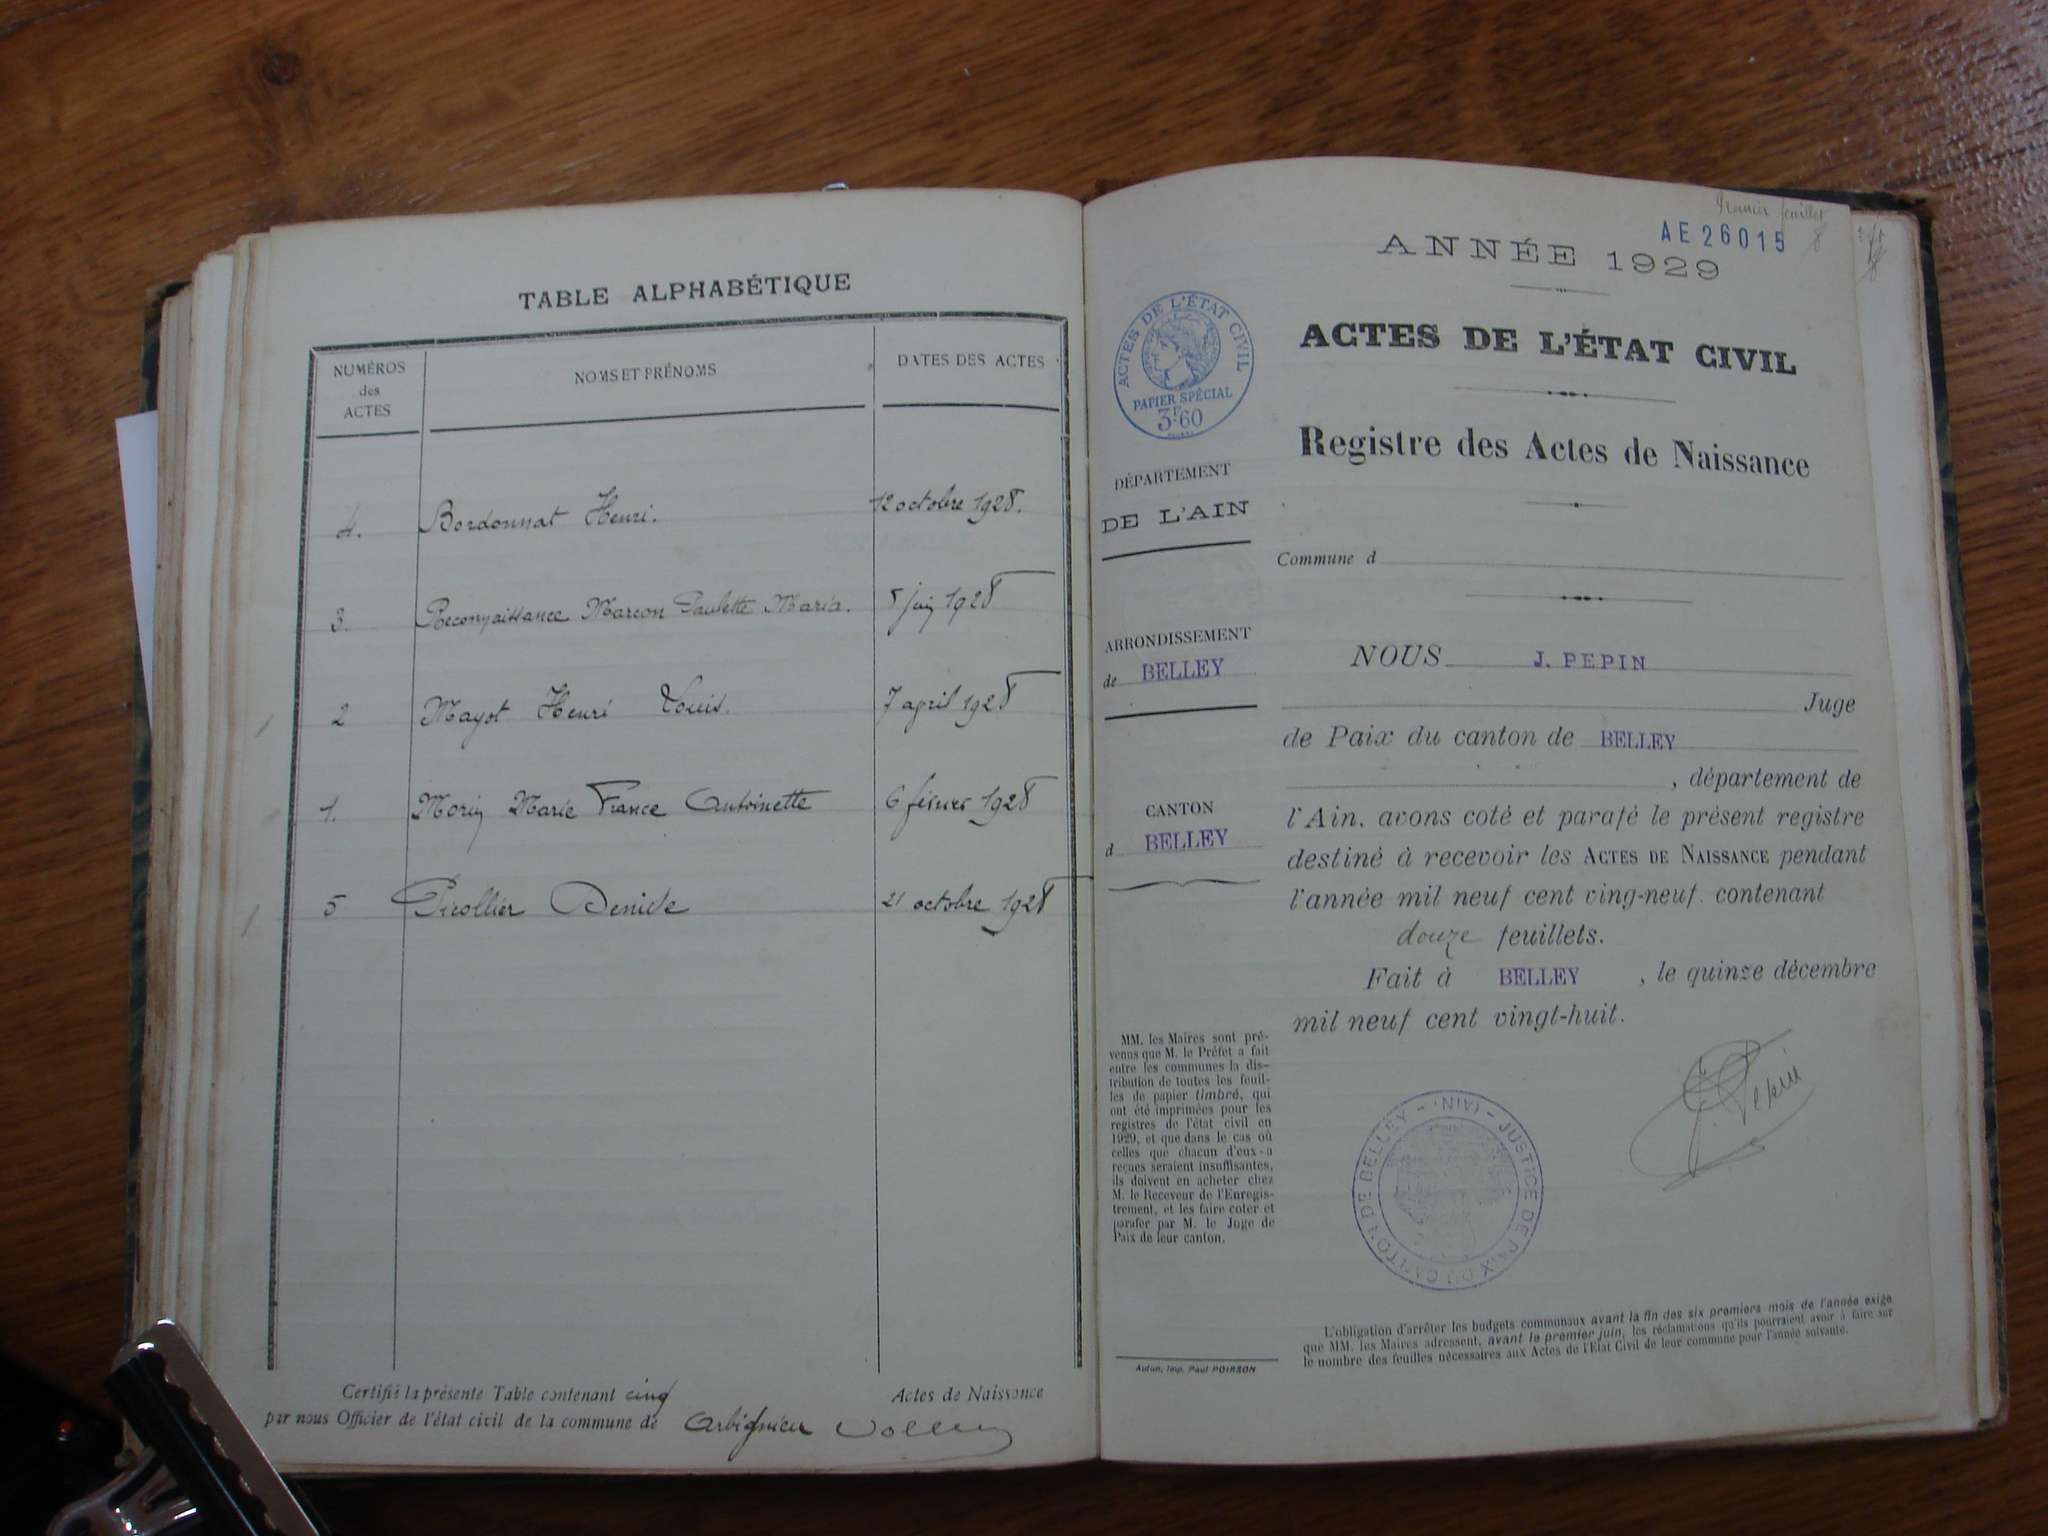 TABLE ALPHABÉTIQUE
NUMÉROS des ACTES
NOMS ET PRÉNOMS
DATES DES ACTES
4. Bordonnat Henri. 12 octobre 1928.
3. Reconnaissance Marcon Paulette Maria. 5 juin 1928
2 Mayot Henri Louis. 7 april 1928
1. Morin Marie France Antoinette 6 février 1928
5 Pirollier Denise 21 octobre 1928
Certifié la présente Table contenant cinq Actes de Naissance
par nous Officier de l'état civil de la commune de Arbignieu
Premier feuillet
AE 26015
ANNÉE 1929
ACTES DE L'ÉTAT CIVIL
PAPIER SPÉCIAL
3F60
ACTES DE L'ÉTAT CIVIL
Registre des Actes de Naissance
DÉPARTEMENT
DE L'AIN
Commune d
ARRONDISSEMENT
de BELLEY
CANTON
d BELLEY
NOUS J. PEPIN
Juge
de Paix du canton de BELLEY
, département de
l'Ain, avons coté et parafé le présent registre
destiné à recevoir les ACTES DE NAISSANCE pendant
l'année mil neuf cent ving-neuf. contenant
douze feuillets.
Fait à BELLEY, le quinze décembre
mil neuf cent vingt-huit.
MM. les Maires sont pré-
venus que M. le Préfet a fait
entre les communes la dis-
tribution de toutes les feuil-
les de papier timbré, qui
ont été imprimées pour les
registres de l'état civil en
1929, et que dans le cas où
celles que chacun d'eux a
reçues seraient insuffisantes,
ils doivent en acheter chez
M. le Receveur de l'Enregis-
trement, et les faire coter et
parafer par M. le Juge de
Paix de leur canton.
J. Pepin
JUSTICE DE PAIX DU CANTON DE BELLEY - (AIN) -
L'obligation d'arrêter les budgets communaux avant la fin des six premiers mois de l'année exige
que MM. les Maires adressent, avant le premier juin, les réclamations qu'ils pourraient avoir à faire sur
le nombre des feuilles nécessaires aux Actes de l'Etat Civil de leur commune pour l'année suivante.
Autun, Imp. Paul POIRSON